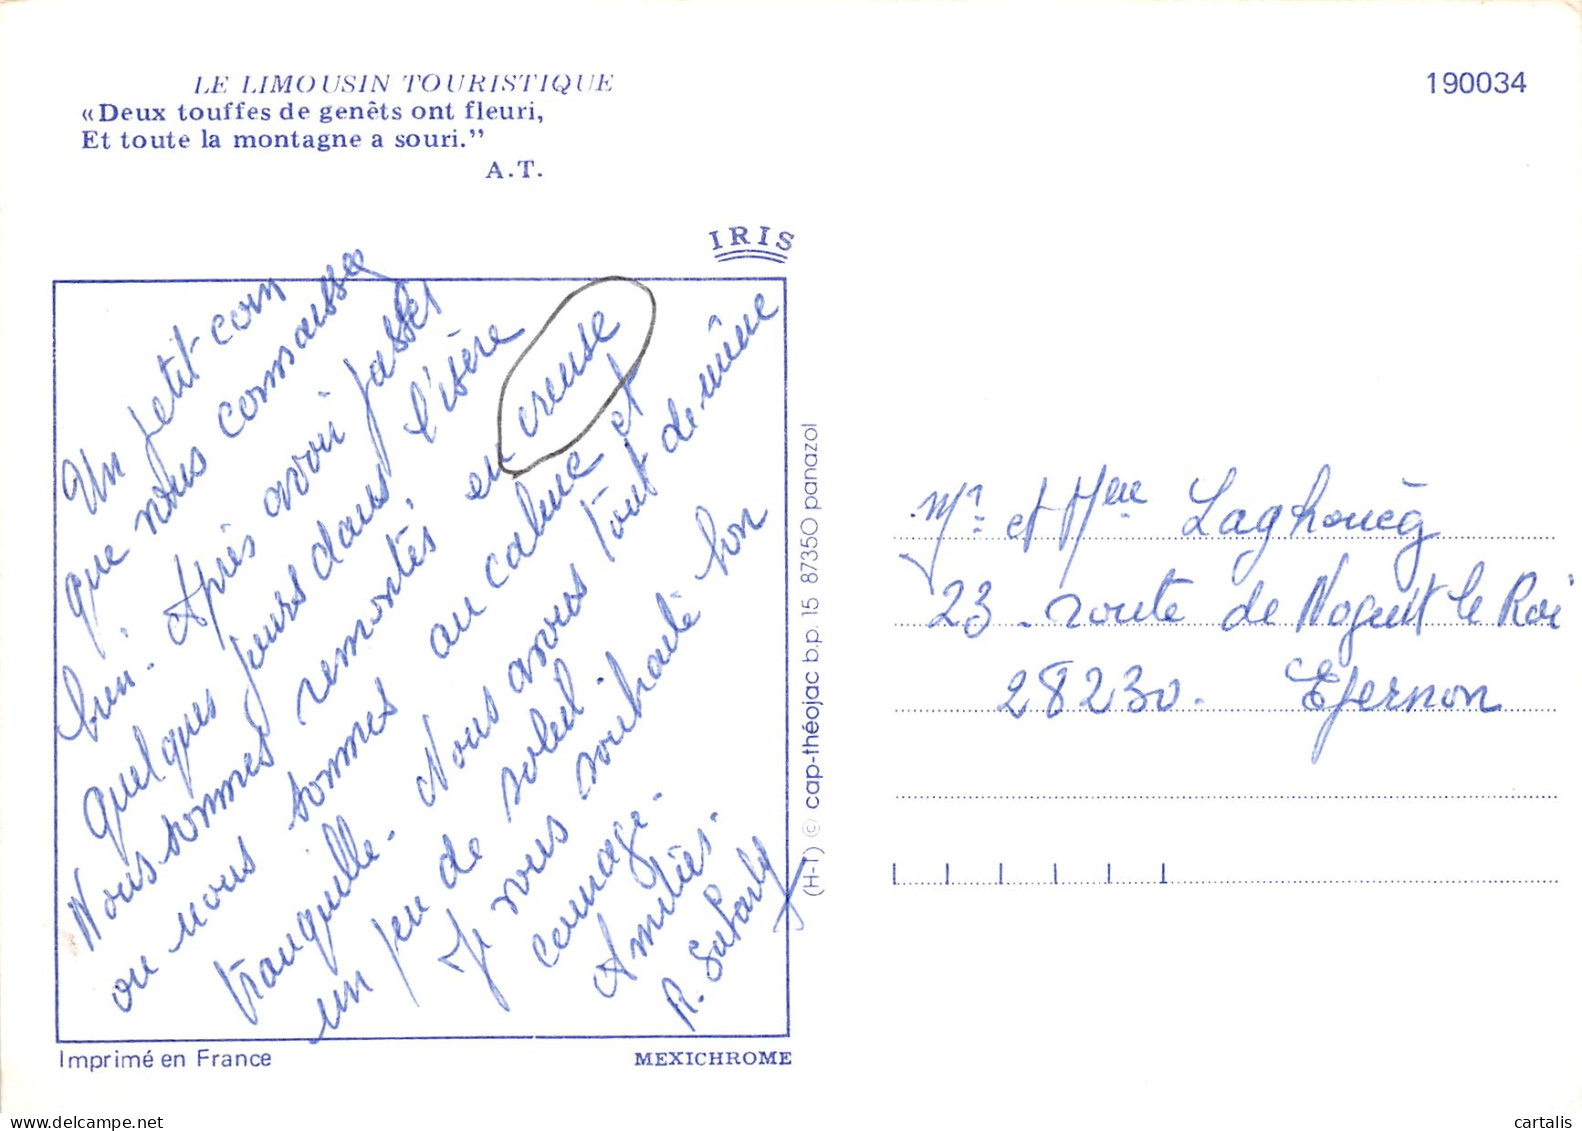 LE LIMOUSIN TOURISTIQUE
«Deux touffes de genêts ont fleuri,
Et toute la montagne a souri.”
A.T.
190034
IRIS
Un petit coin
que nous connaissez
bien. Après avoir passer
quelques jours dans l'isère
Nous sommes remontés en creuse
ou nous sommes au calme et
tranquille. Nous avons tout de même
un peu de soleil
Je vous souhaite bon
courage.
Amitiés.
R.
(H-T) © cap-théojac b.p. 15 87350 panazol
Mr et Mme
23 - route de Nogent le Roi
28230. Epernon
Imprimé en France
MEXICHROME
cartalis